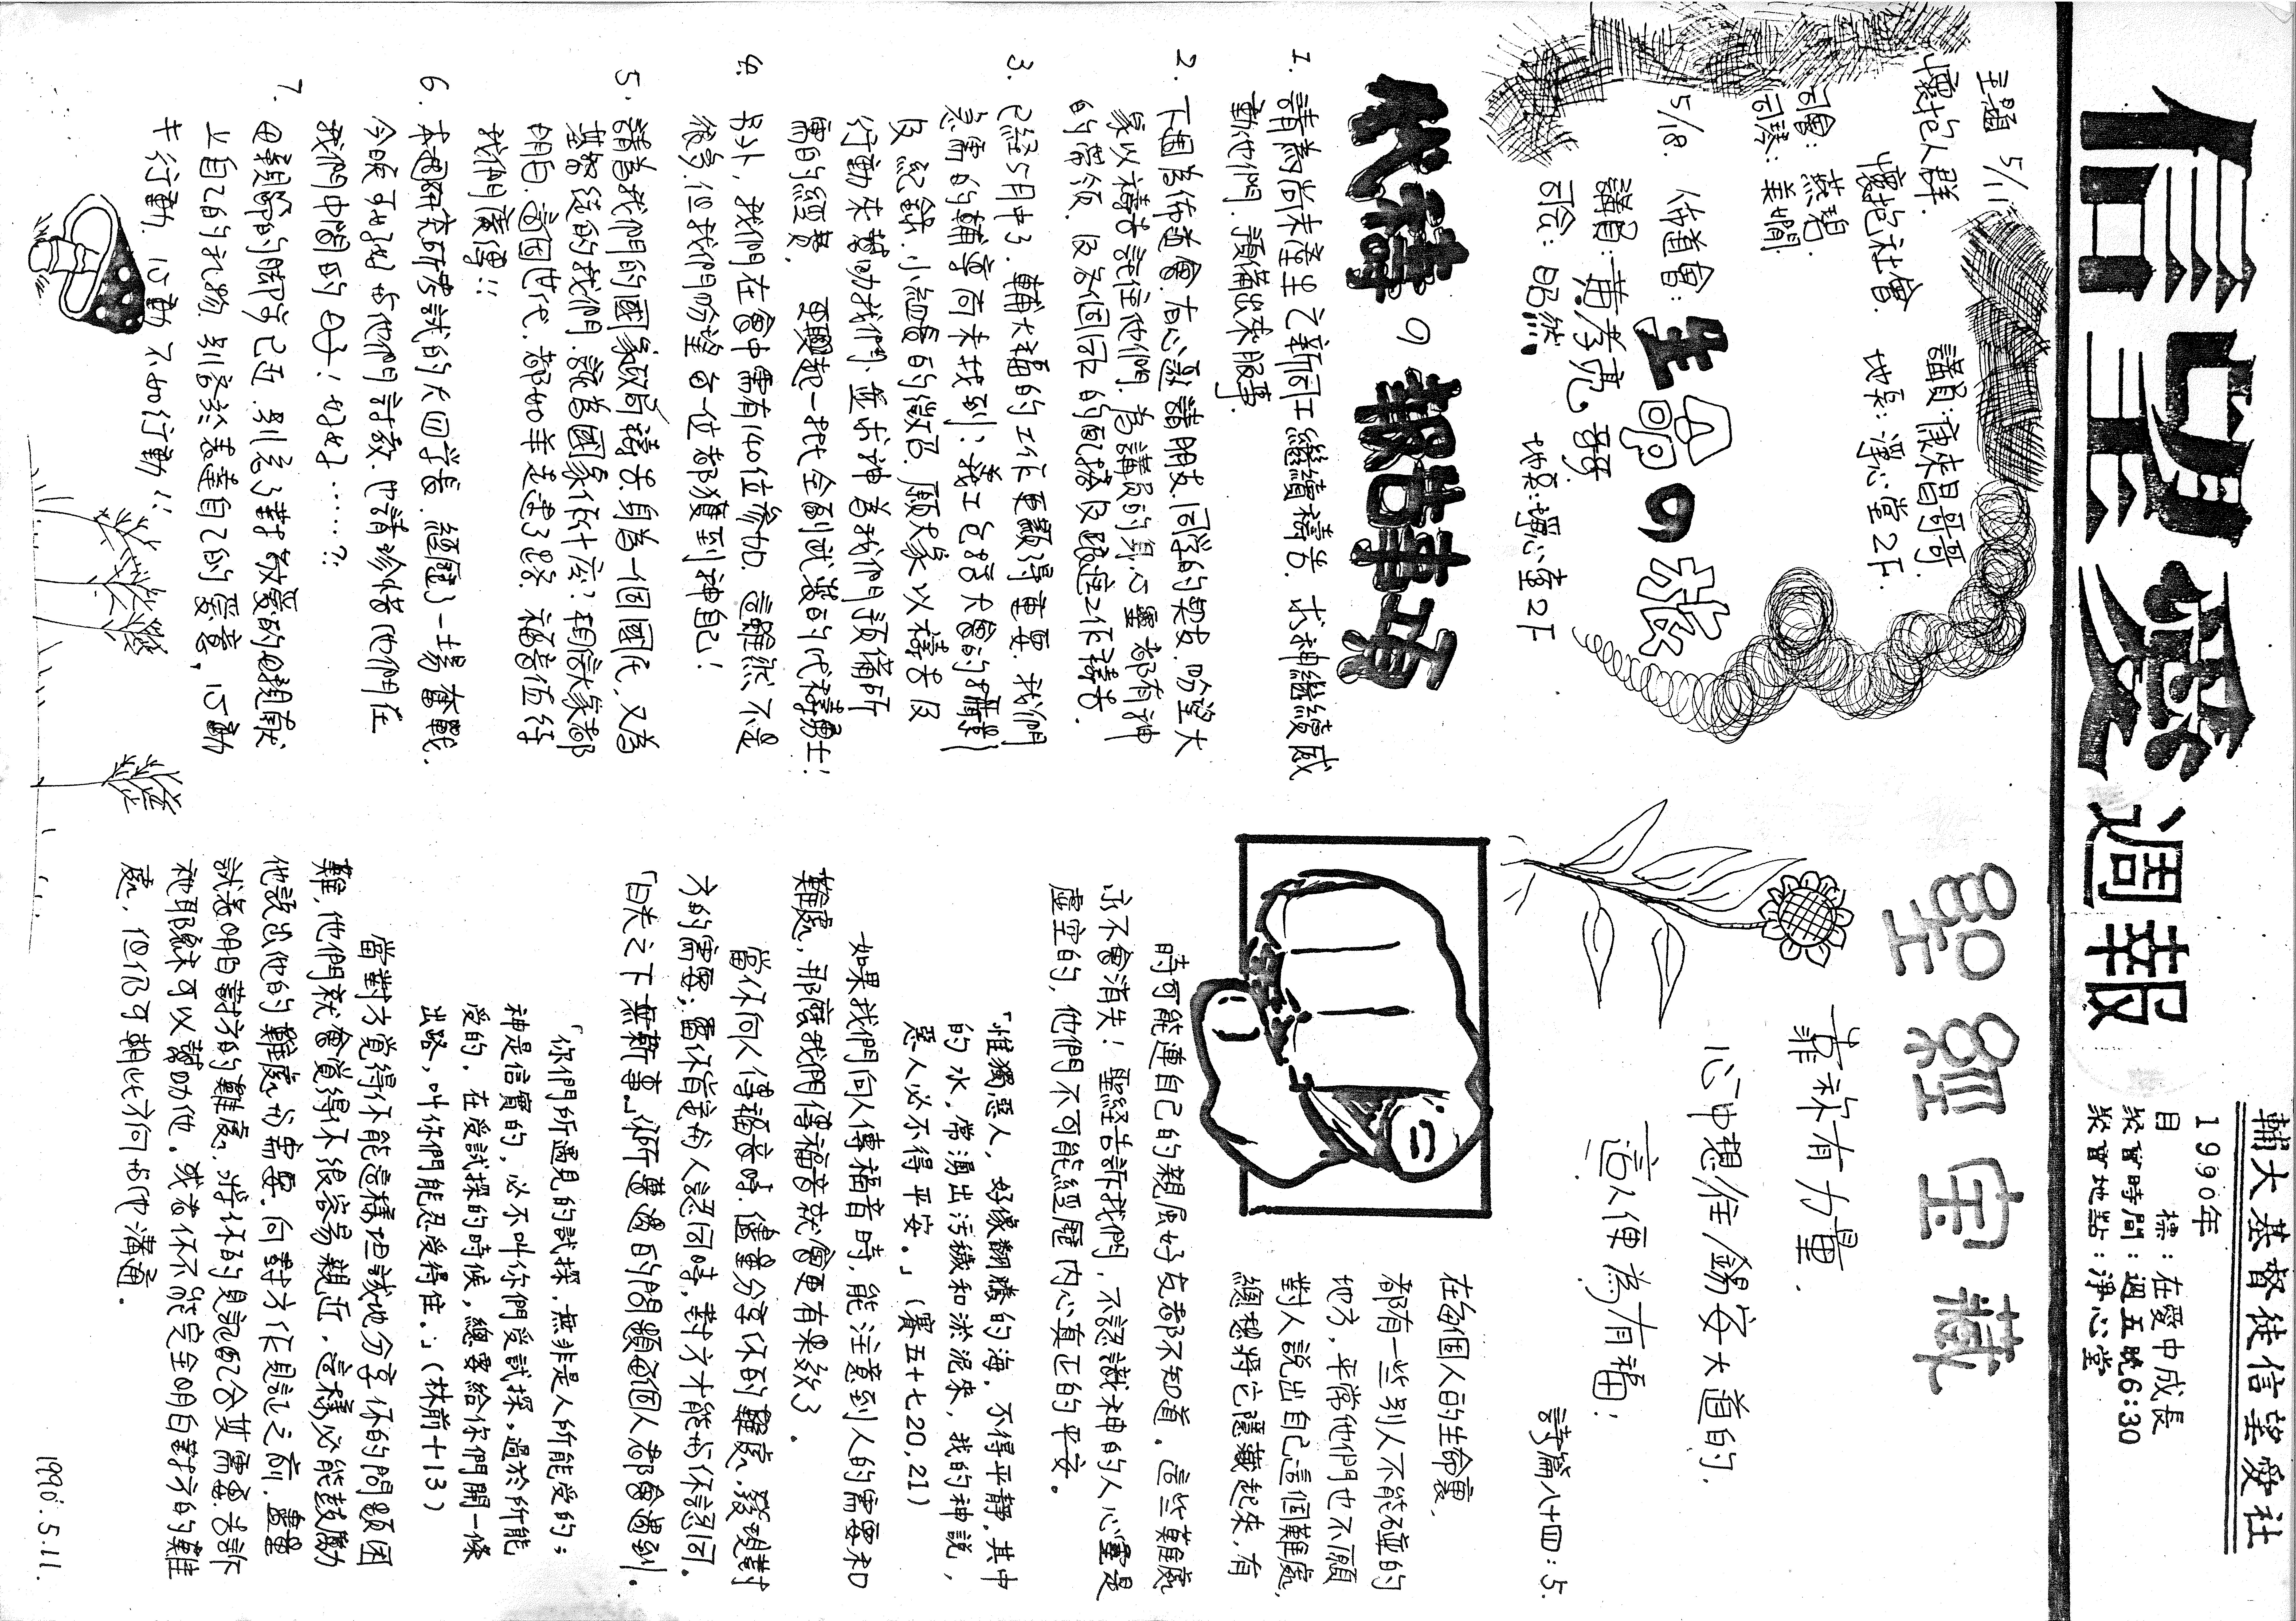 信望愛週報
輔大基督徒信望愛社
1990年
目　標：在愛中成長
聚會時間：週五晚6:30
聚會地點：淨心堂
主題 5/11
懷抱人群.
懷抱社會.
司會：燕琚
司琴：美嫻.
講員：蘇求昌哥哥.
地点：淨心堂2F.
5/18. 佈道會：生命的歌
講員：黃孝亮。哥哥
司会：昭然.
地点：淨心堂2F
代禱の報告事項
1. 請為尚未產生之新同工繼續禱告. 求神繼續感
動他們. 預備出來服事.
2. 下週為佈道會. 有心邀請朋友. 同學的契友. 盼望大
家以禱告託住他們. 為講員的身. 心靈都有神
的帶領. 及各個同工的配搭及跟進工作禱告.
3. 已經5月中了. 輔大福的工作更顯得重要. 我們
急需的輔導尚未找到；義工包括大會的攝影
及紀錄. 小組長的徵召. 願大家以禱告及
行動來幫助我們. 並求神為我們預備所
需的經費. 更興起一批全副武裝的代禱勇士！
4. 另外, 我們在會中需有140位參加. 這雖然不是
很多. 但我們盼望每一位都獲到神自己！
5. 請為我們的國家政局禱告. 身為一個國民. 又為
基督徒的我們. 能為國家作什麼？相信大家都
明白. 這個世代. 都如羊走迷了路. 福音值得
我們廣傳!!
6. 本週研究所考試的大四學長. 經歷了一場奮戰.
今晚可好好与他們討教. 也請珍惜著他們在
我們中間的日子！好好……?:
7. 母親節的腳步已近. 別忘了對教養的母親獻
上自己的礼物. 別害於表達自己的愛意, 心動
去行動. 心動不如行動!!
聖經宝藏
靠祢有力量.
心中想往錫安大道的.
這人便為有福；
詩篇八十四：5.
在每個人的生命裏,
都有一些別人不能碰的
地方, 平常他們也不願
對人說出自己這個難處,
總想將它隱藏起來, 有
時可能連自己的親戚好友都不知道. 這些難處
亦不會消失！聖經告訴我們, 不認識神的人心靈是
虛空的, 他們不可能經歷內心真正的平安。
「惟獨惡人, 好像翻騰的海. 不得平靜. 其中
的水, 常湧出污穢和淤泥來, 我的神說,
惡人必不得平安。」（賽五十七20, 21）
如果我們向人傳福音時, 能注意到人的需要和
難處, 那麼我們傳福音就會更有果效了。
當你向人傳福音時. 儘量分享你的難處, 發現對
方的需要；當你肯定的人認同時, 對方才能与你認同.
「日光之下無新事」你所遭遇的問題每個人都會遇到.
「你們所遇見的試探, 無非是人所能受的；
神是信實的, 必不叫你們受試探, 過於所能
受的. 在受試探的時候, 總要給你們開一條
出路, 叫你們能忍受得住。」（林前十13）
當對方覺得你能這樣坦誠地分享你的問題困
難, 他們就會覺得你很容易親近, 這樣必能鼓勵
他談談他的難處与需要. 向對方作見証之前. 盡量
試著明白對方的難處, 將你的見証配合其需要. 告訴
祂耶穌可以幫助他, 或者你不能完全明白對方的難
處, 但仍可朝此方向与他溝通.
1990.5.11.